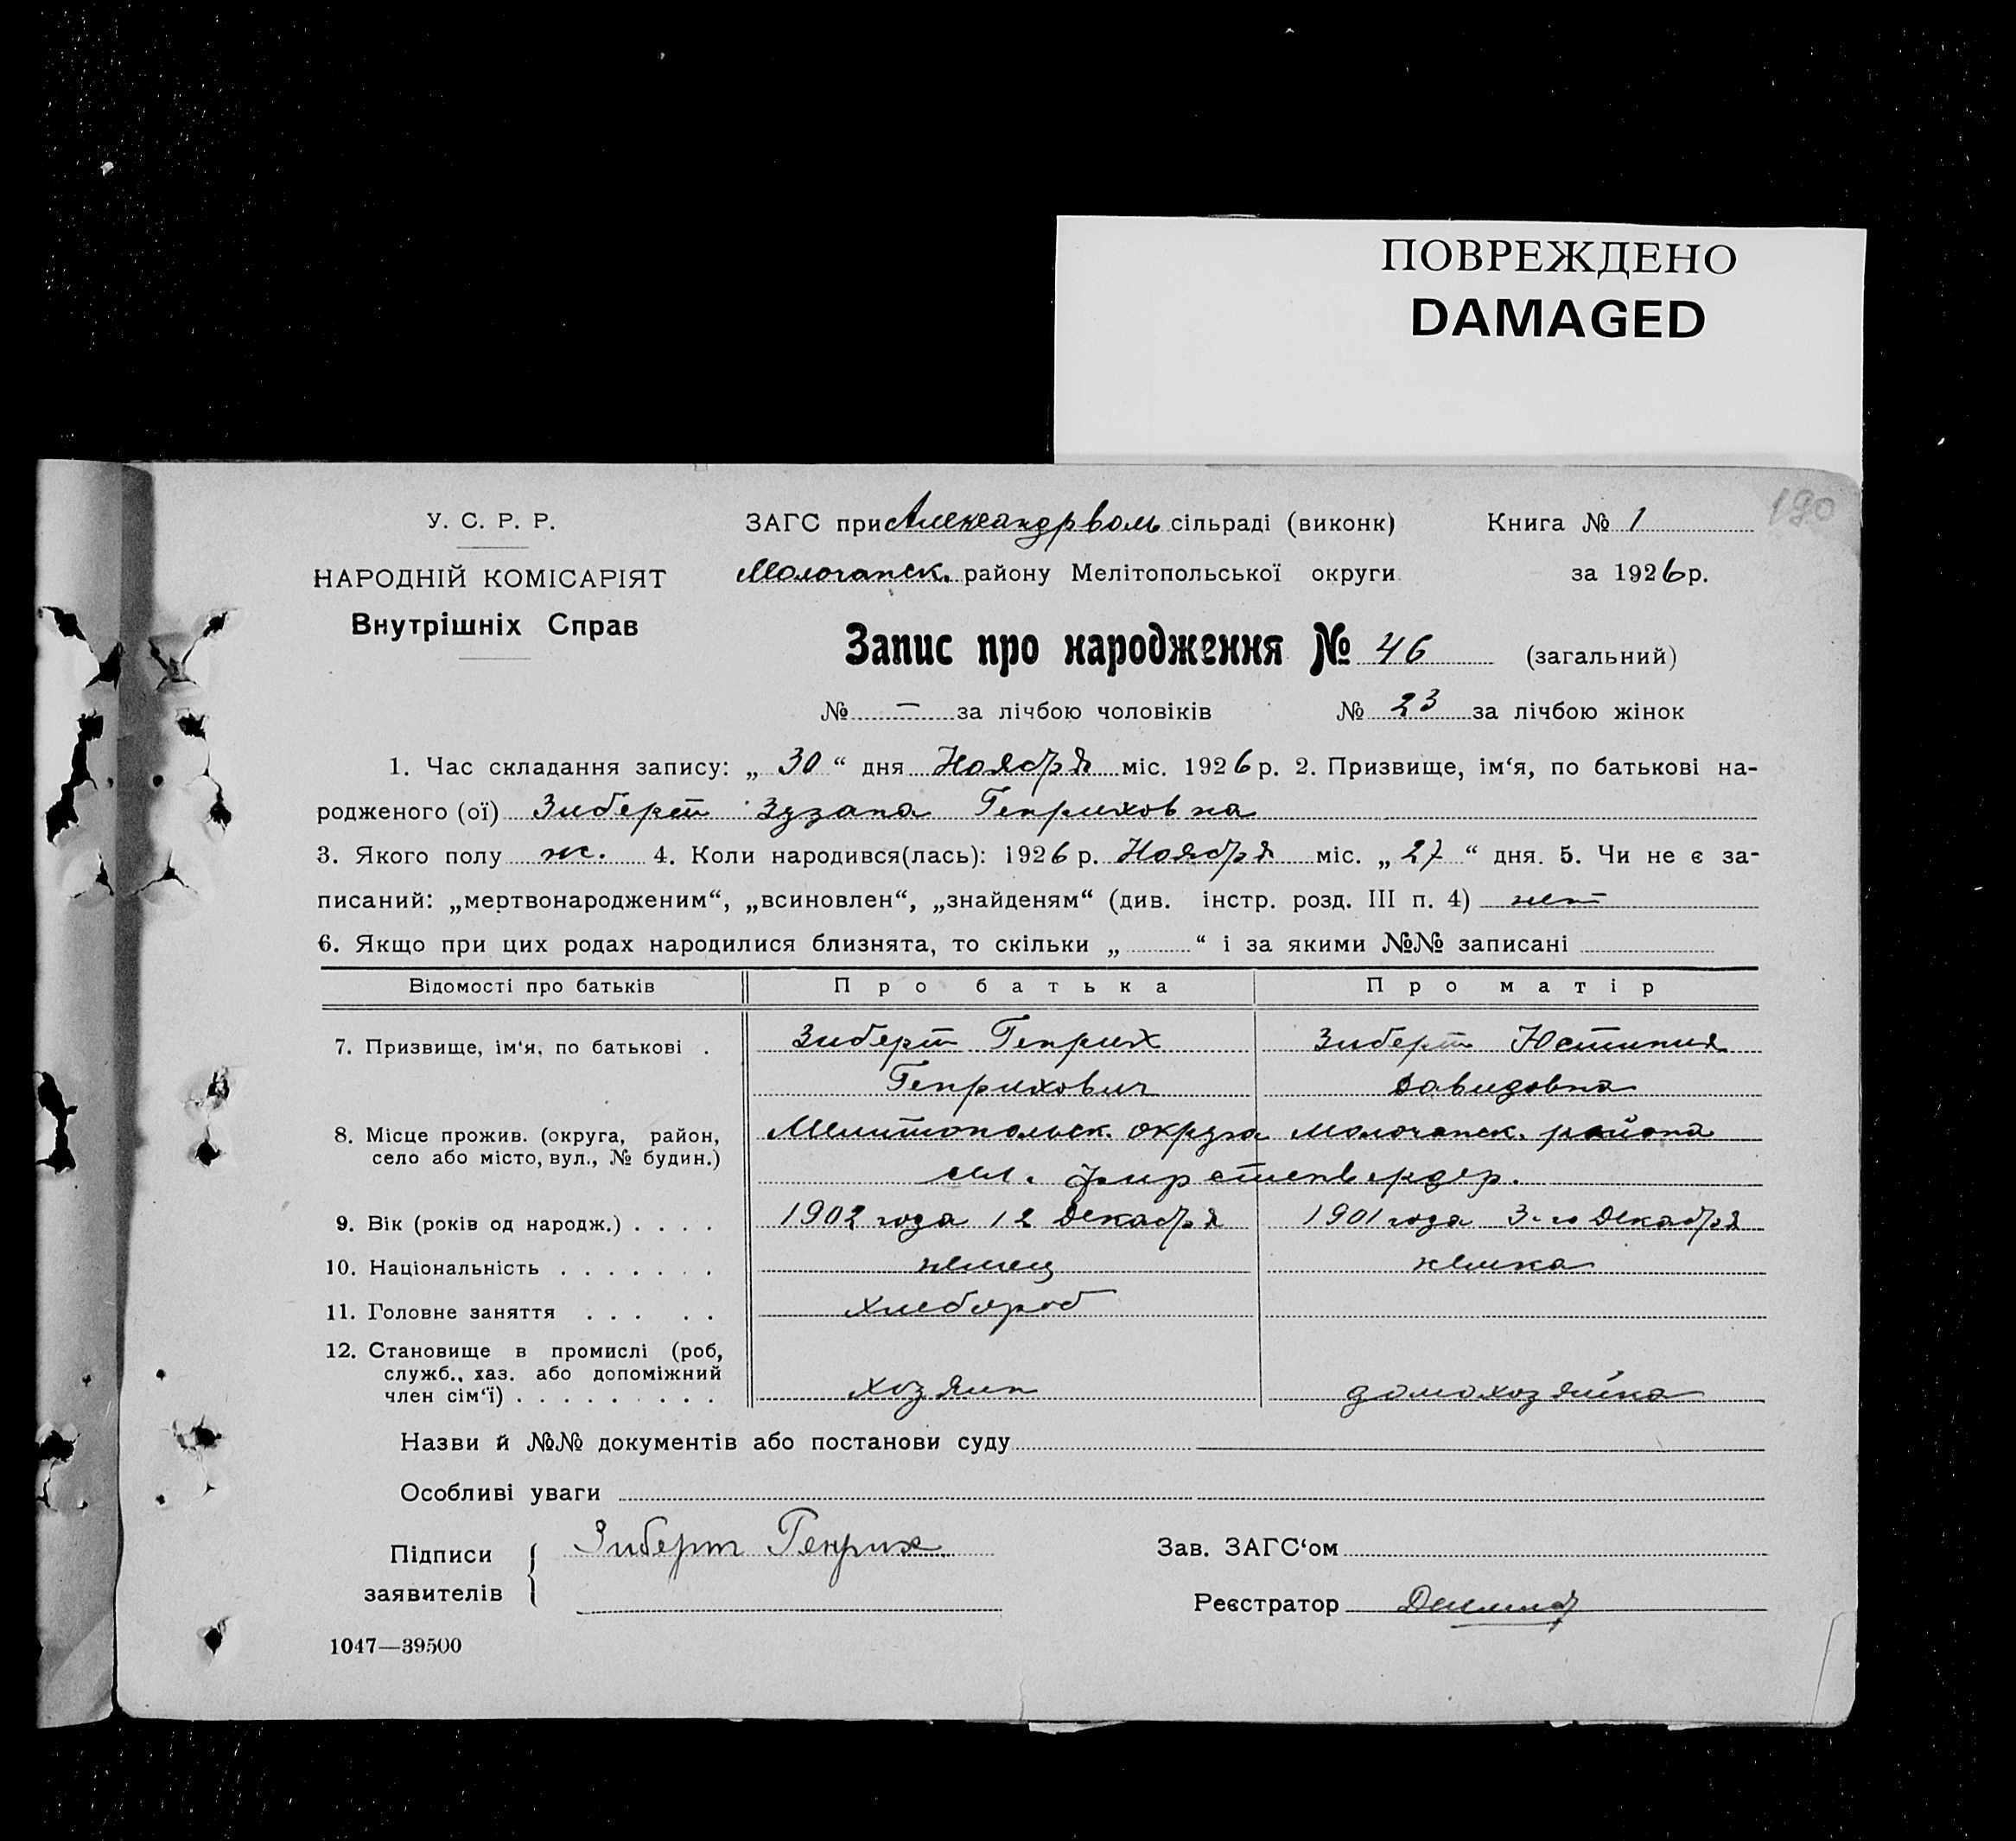 ПОВРЕЖДЕНО
DAMAGED
190
У. С. Р. Р.
НАРОДНІЙ КОМІСАРІЯТ
Внутрішніх Справ
ЗАГС при Александрволь сільраді (виконк) Книга № 1
Молочанск. району Мелітопольської округи за 1926 р.
Запис про народження № 46 (загальний)
№ — за лічбою чоловіків № 23 за лічбою жінок
1. Час складання запису: „ 30 “ дня Ноября міс. 1926 р. 2. Призвище, ім‘я, по батькові на-
родженого (ої) Зиберт Зузана Генриховна
3. Якого полу ж. 4. Коли народився(лась): 1926 р. Ноября міс. „ 27 “ дня. 5. Чи не є за-
писаний: „мертвонародженим“, „всиновлен“, „знайденям“ (див. інстр. розд. III п. 4) нет
6. Якщо при цих родах народилися близнята, то скільки „ “ і за якими №№ записані
Відомості про батьків Про батька Про матір
7. Призвище, ім‘я, по батькові . Зиберт Генрих Зиберт Юстиния
Генрихович Давидовна
8. Місце прожив. (округа, район, Мелитопольск. округа Молочанск. района
село або місто, вул., № будин.) сел. Фирстенвердер.
9. Вік (років од народж.) . . . . 1902 года 12 Декабря 1901 года 3-го Декабря
10. Національність . . . . . . . немец немка
11. Головне заняття . . . . . хлебороб
12. Становище в промислі (роб,
служб., хаз. або допоміжний
член сім‘ї) . . . . . . . . . хозяин домохозяйка
Назви й №№ документів або постанови суду
Особливі уваги
Підписи Зиберт Генрих Зав. ЗАГС‘ом
заявителів Реєстратор
1047—39500